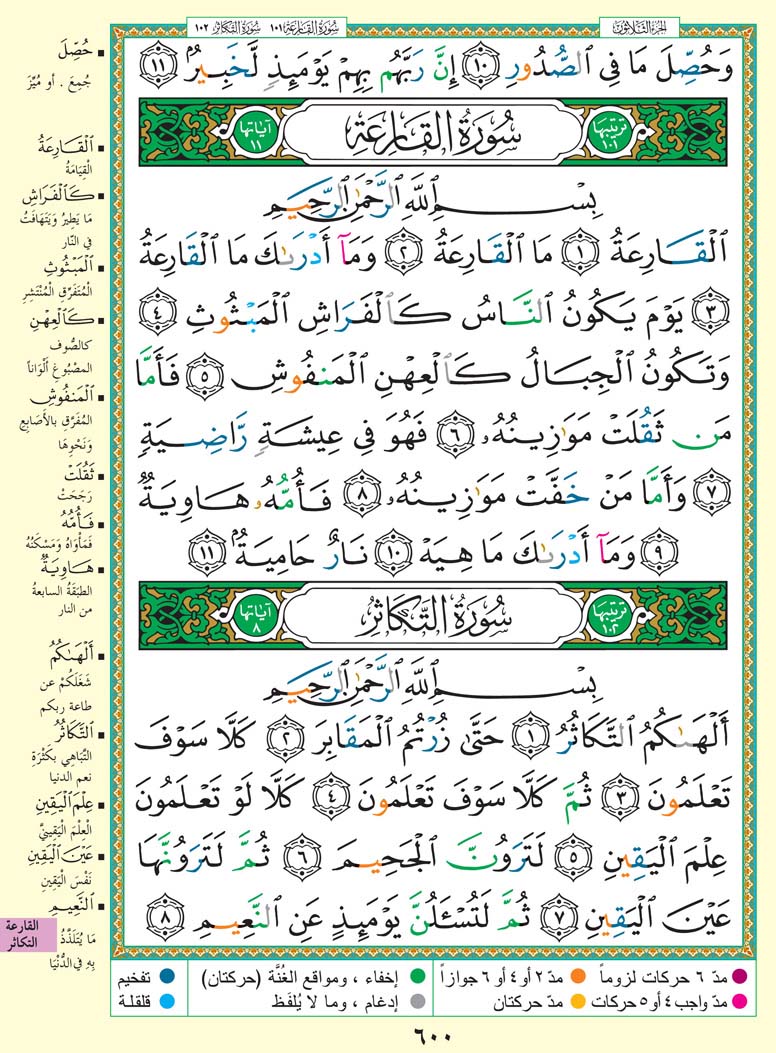 سُورَةُ القَارِعَةِ ١٠١ سُورَةُ التَّكَاثُرِ ١٠٢
الجُزءُ الثَّلَاثُونَ
وَحُصِّلَ مَا فِى ٱلصُّدُورِ ١٠ إِنَّ رَبَّهُم بِهِمْ يَوْمَئِذٍ لَّخَبِيرٌۢ ١١
ترتيبها ١٠١ سُورَةُ القَارِعَةِ آياتها ١١
بِسْمِ ٱللَّهِ ٱلرَّحْمَٰنِ ٱلرَّحِيمِ
ٱلْقَارِعَةُ ١ مَا ٱلْقَارِعَةُ ٢ وَمَآ أَدْرَىٰكَ مَا ٱلْقَارِعَةُ
٣ يَوْمَ يَكُونُ ٱلنَّاسُ كَٱلْفَرَاشِ ٱلْمَبْثُوثِ ٤
وَتَكُونُ ٱلْجِبَالُ كَٱلْعِهْنِ ٱلْمَنفُوشِ ٥ فَأَمَّا
مَن ثَقُلَتْ مَوَٰزِينُهُۥ ٦ فَهُوَ فِى عِيشَةٍ رَّاضِيَةٍ
٧ وَأَمَّا مَنْ خَفَّتْ مَوَٰزِينُهُۥ ٨ فَأُمُّهُۥ هَاوِيَةٌ
٩ وَمَآ أَدْرَىٰكَ مَا هِيَهْ ١٠ نَارٌ حَامِيَةٌۢ ١١
ترتيبها ١٠٢ سُورَةُ التَّكَاثُرِ آياتها ٨
بِسْمِ ٱللَّهِ ٱلرَّحْمَٰنِ ٱلرَّحِيمِ
أَلْهَىٰكُمُ ٱلتَّكَاثُرُ ١ حَتَّىٰ زُرْتُمُ ٱلْمَقَابِرَ ٢ كَلَّا سَوْفَ
تَعْلَمُونَ ٣ ثُمَّ كَلَّا سَوْفَ تَعْلَمُونَ ٤ كَلَّا لَوْ تَعْلَمُونَ
عِلْمَ ٱلْيَقِينِ ٥ لَتَرَوُنَّ ٱلْجَحِيمَ ٦ ثُمَّ لَتَرَوُنَّهَا
عَيْنَ ٱلْيَقِينِ ٧ ثُمَّ لَتُسْـَٔلُنَّ يَوْمَئِذٍ عَنِ ٱلنَّعِيمِ ٨
حُصِّلَ
جُمِعَ . أو مُيِّزَ
ٱلْقَارِعَةُ
القِيَامَةُ
كَٱلْفَرَاشِ
مَا يَطِيرُ وَيَتَهَافَتُ
فِي النَّارِ
ٱلْمَبْثُوثِ
الْمُتَفَرِّقِ الْمُنْتَشِرِ
كَٱلْعِهْنِ
كالصُّوف
المصْبُوغِ أَلْوَاناً
ٱلْمَنفُوشِ
المُفَرَّقِ بالأَصَابِعِ
وَنَحْوِهَا
ثَقُلَتْ
رَجَحَتْ
فَأُمُّهُ
فَمَأْوَاهُ وَمَسْكَنُهُ
هَاوِيَةٌ
الطبَقَةُ السابعةُ
من النار
أَلْهَىٰكُمُ
شَغَلَكُمْ عن
طاعة ربكم
ٱلتَّكَاثُرُ
التَّبَاهِي بكَثْرَةِ
نعم الدنيا
عِلْمَ ٱلْيَقِينِ
الْعِلْمَ الْيَقِينِيَّ
عَيْنَ ٱلْيَقِينِ
نَفْسَ الْيَقِينِ
ٱلنَّعِيمِ
مَا يُتَلَذَّذُ
بِهِ فِي الدُّنْيَا
القارعة
التكاثر
مدّ ٦ حركات لزوماً مدّ ٢ أو ٤ أو ٦ جوازاً إخفاء ، ومواقع الغُنَّة (حركتان) تفخيم
مدّ واجب ٤ أو ٥ حركات مدّ حركتان إدغام ، وما لا يُلفَظ قلقلة
٦٠٠